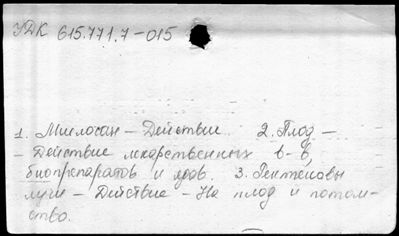 УДК 615.771.7-015
1. Миелосан - Действие. 2. Плод -
- Действие лекарственных в-в,
биопрепаратов и ядов. 3. Рентгеновы
лучи - Действие - На плод и потом-
ство.